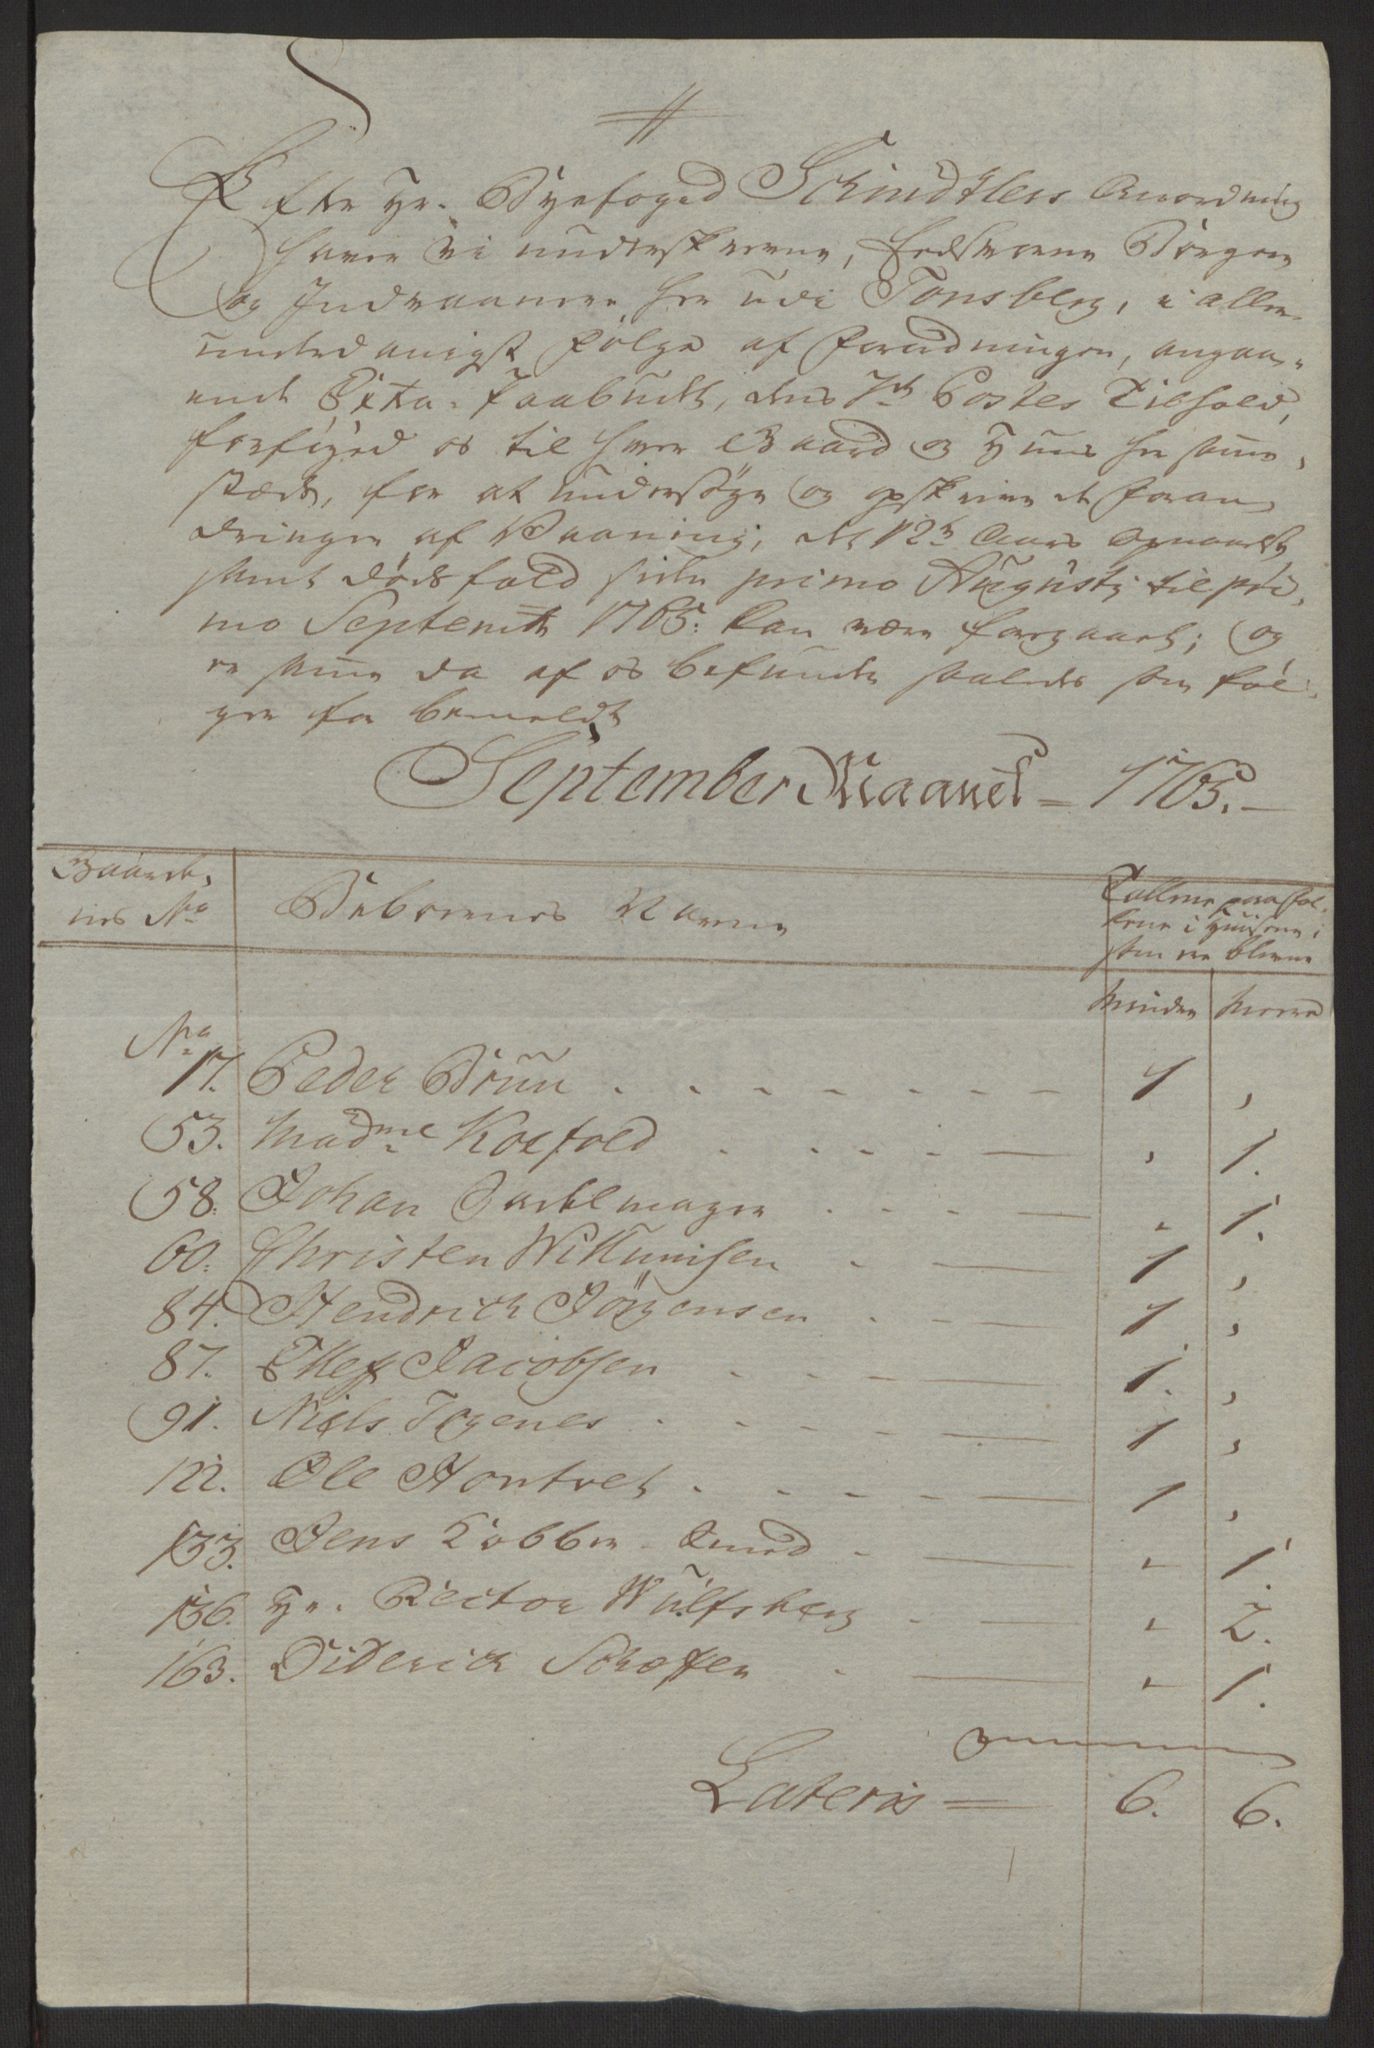 Efter Hr. Byefoged Schindtlers Anordning
haver vi underskrevne, Eedsvorne Borgere
og Indvaanere her udi Tønsberg, i aller-
underdanigst følge af Forordningen, angaa-
ende Extra-Paabudt, dens 7de Postes Tilhold,
forføyed os til hver Gaard og Huus her samme-
stæds, for at undersøge og opskrive de Foran-
dringer af Vaaning, det 12te Aars opnaaelse
samt dødsfald siden primo Augusti til pri-
mo Septembr 1765. kan være foregaaet; og
er samme da af os befunden saaledes som føl-
ger for bemeldte
September Maanet = 1765.
Gaarde-
nes No
Beboernes Navne
Tallene paa fol-
kene i Huusene,
som ere blevne
Minder Meere
No
17. Peder Bruun . . . 1 ,
53. Madme Koefoed . . . , 1.
58. Johan Sadelmager . . . , 1.
60. Christen Willumsen . 1 ,
84. Hendrich Jörgensen . . 1 ,
87. Ellef Jacobsen . . . 1. ,
91. Niels Togenes . . . 1 ,
122. Ole Hontvet . . . 1 ,
133. Jens Kobber-Smed . , 1.
136. Hr. Rector Wulfsberg . , 2.
163. Diderich Schøffer . , 1.
Lateris = 6. 6.